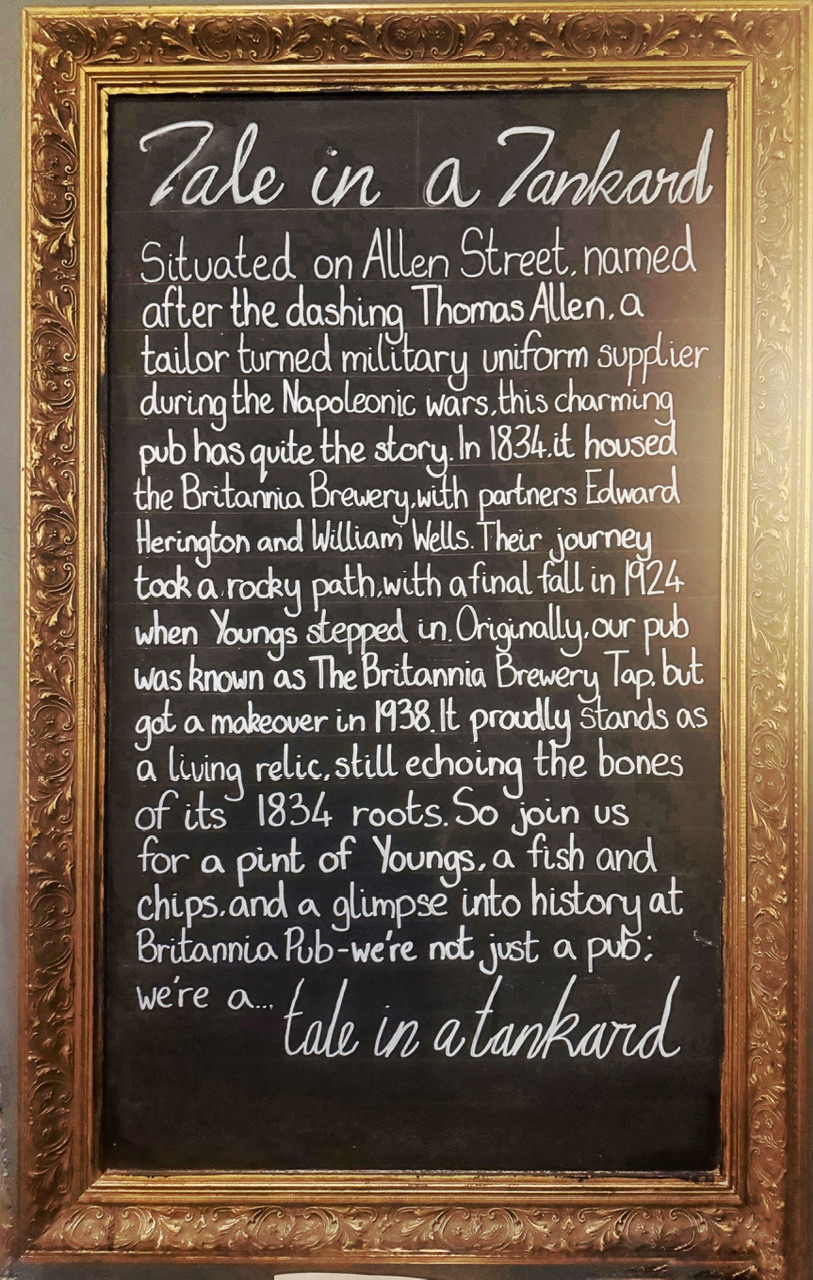 Tale in a Tankard
Situated on Allen Street, named
after the dashing Thomas Allen, a
tailor turned military uniform supplier
during the Napoleonic wars, this charming
pub has quite the story. In 1834, it housed
the Britannia Brewery, with partners Edward
Herington and William Wells. Their journey
took a rocky path, with a final fall in 1924
when Youngs stepped in. Originally, our pub
was known as The Britannia Brewery Tap, but
got a makeover in 1938. It proudly stands as
a living relic, still echoing the bones
of its 1834 roots. So join us
for a pint of Youngs, a fish and
chips, and a glimpse into history at
Britannia Pub-we're not just a pub;
we're a...
tale in a tankard